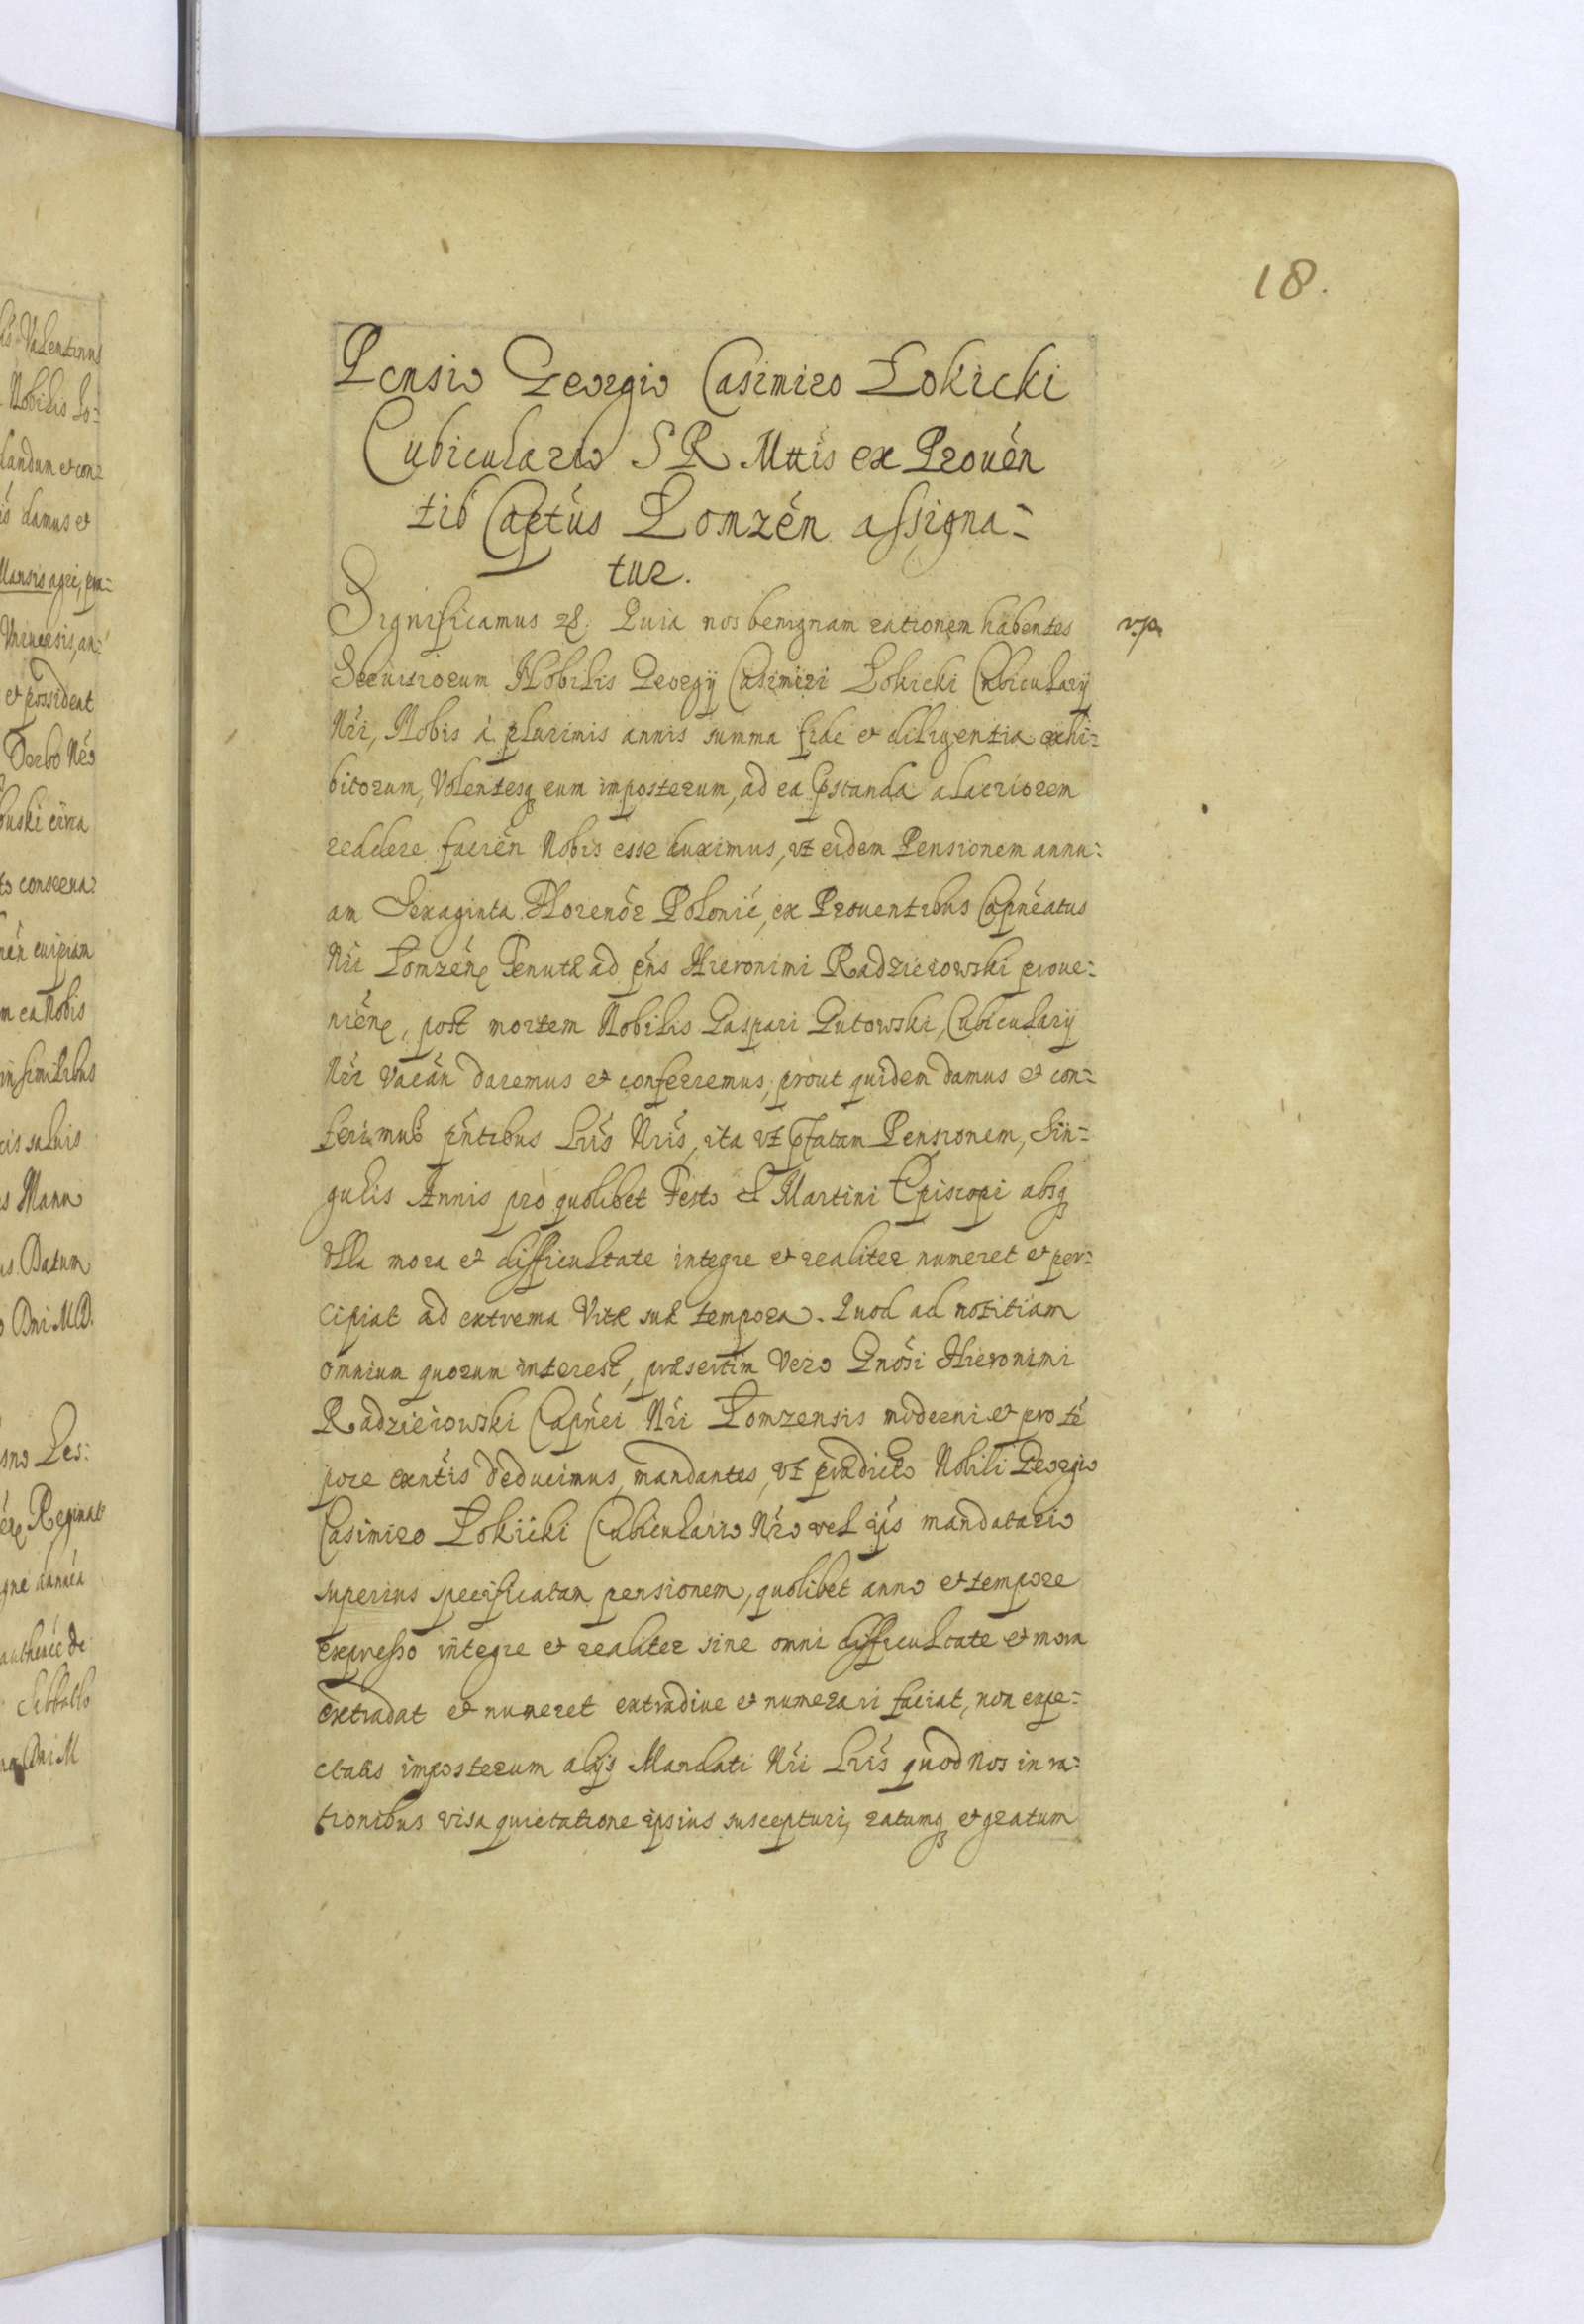 18.
Pensio Georgio Casimiro Łokicki
Cubiculario S R Mttis ex Prouén
tib Captús Łomzén assigna=
tur.
Significamus &. Quia nos benignam rationem habentes
Seruitiorum Nobilis Georgij Casimiri Łokicki Cubicularij
Nri, Nobis à plurimis annis summa fide et diligentia exhi=
bitorum, Volentesq eum imposterum, ad ea pstanda alacriorem
reddere facién Nobis esse duximus, vt eidem Pensionem annu=
am Sexaginta Florenór Polonié, ex Prouentibus Capnéatus
Nri Łomzéń Tenutæ ad pńs Hieronimi Radzieiowski proue=
nién, post mortem Nobilis Gaspari Gutowski, Cubicularij
Nri vacán daremus et conferremus, prout quidem damus et con=
ferimus pńtibus Lris Nris, ita vt pfatam Pensionem, Sin=
gulis Annis pro quolibet Festo S Martini Episcopi absq
vlla mora et difficultate integre et realiter numeret et per=
cipiat ad extrema Vitæ suæ tempora. Quod ad notitiam
omnium quorum interest, præsertim Vero Gnosi Hieronimi
Radzieiowski Capnei Nri Łomzensis moderni et pro té
pore exntis deducimus, mandantes, vt prædicto Nobili Georgio
Casimiro Łokicki Cubiculario Nro vel eijs mandatario
superius specificatam pensionem, quolibet anno et tempore
expresso integre et realiter sine omni difficultate et mora
extradat et numeret extradiue et numerari faciat, non expe=
ctatis imposterum alijs Mandati Nri Lris quod Nos in ra=
tionibus visa quietatione ipsius suscepturi, ratumq et gratum